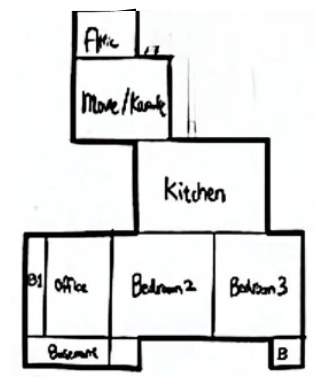 Attic
Movie/Karaoke
Kitchen
B1
Office
Bedroom 2
Bedroom 3
Basement
B